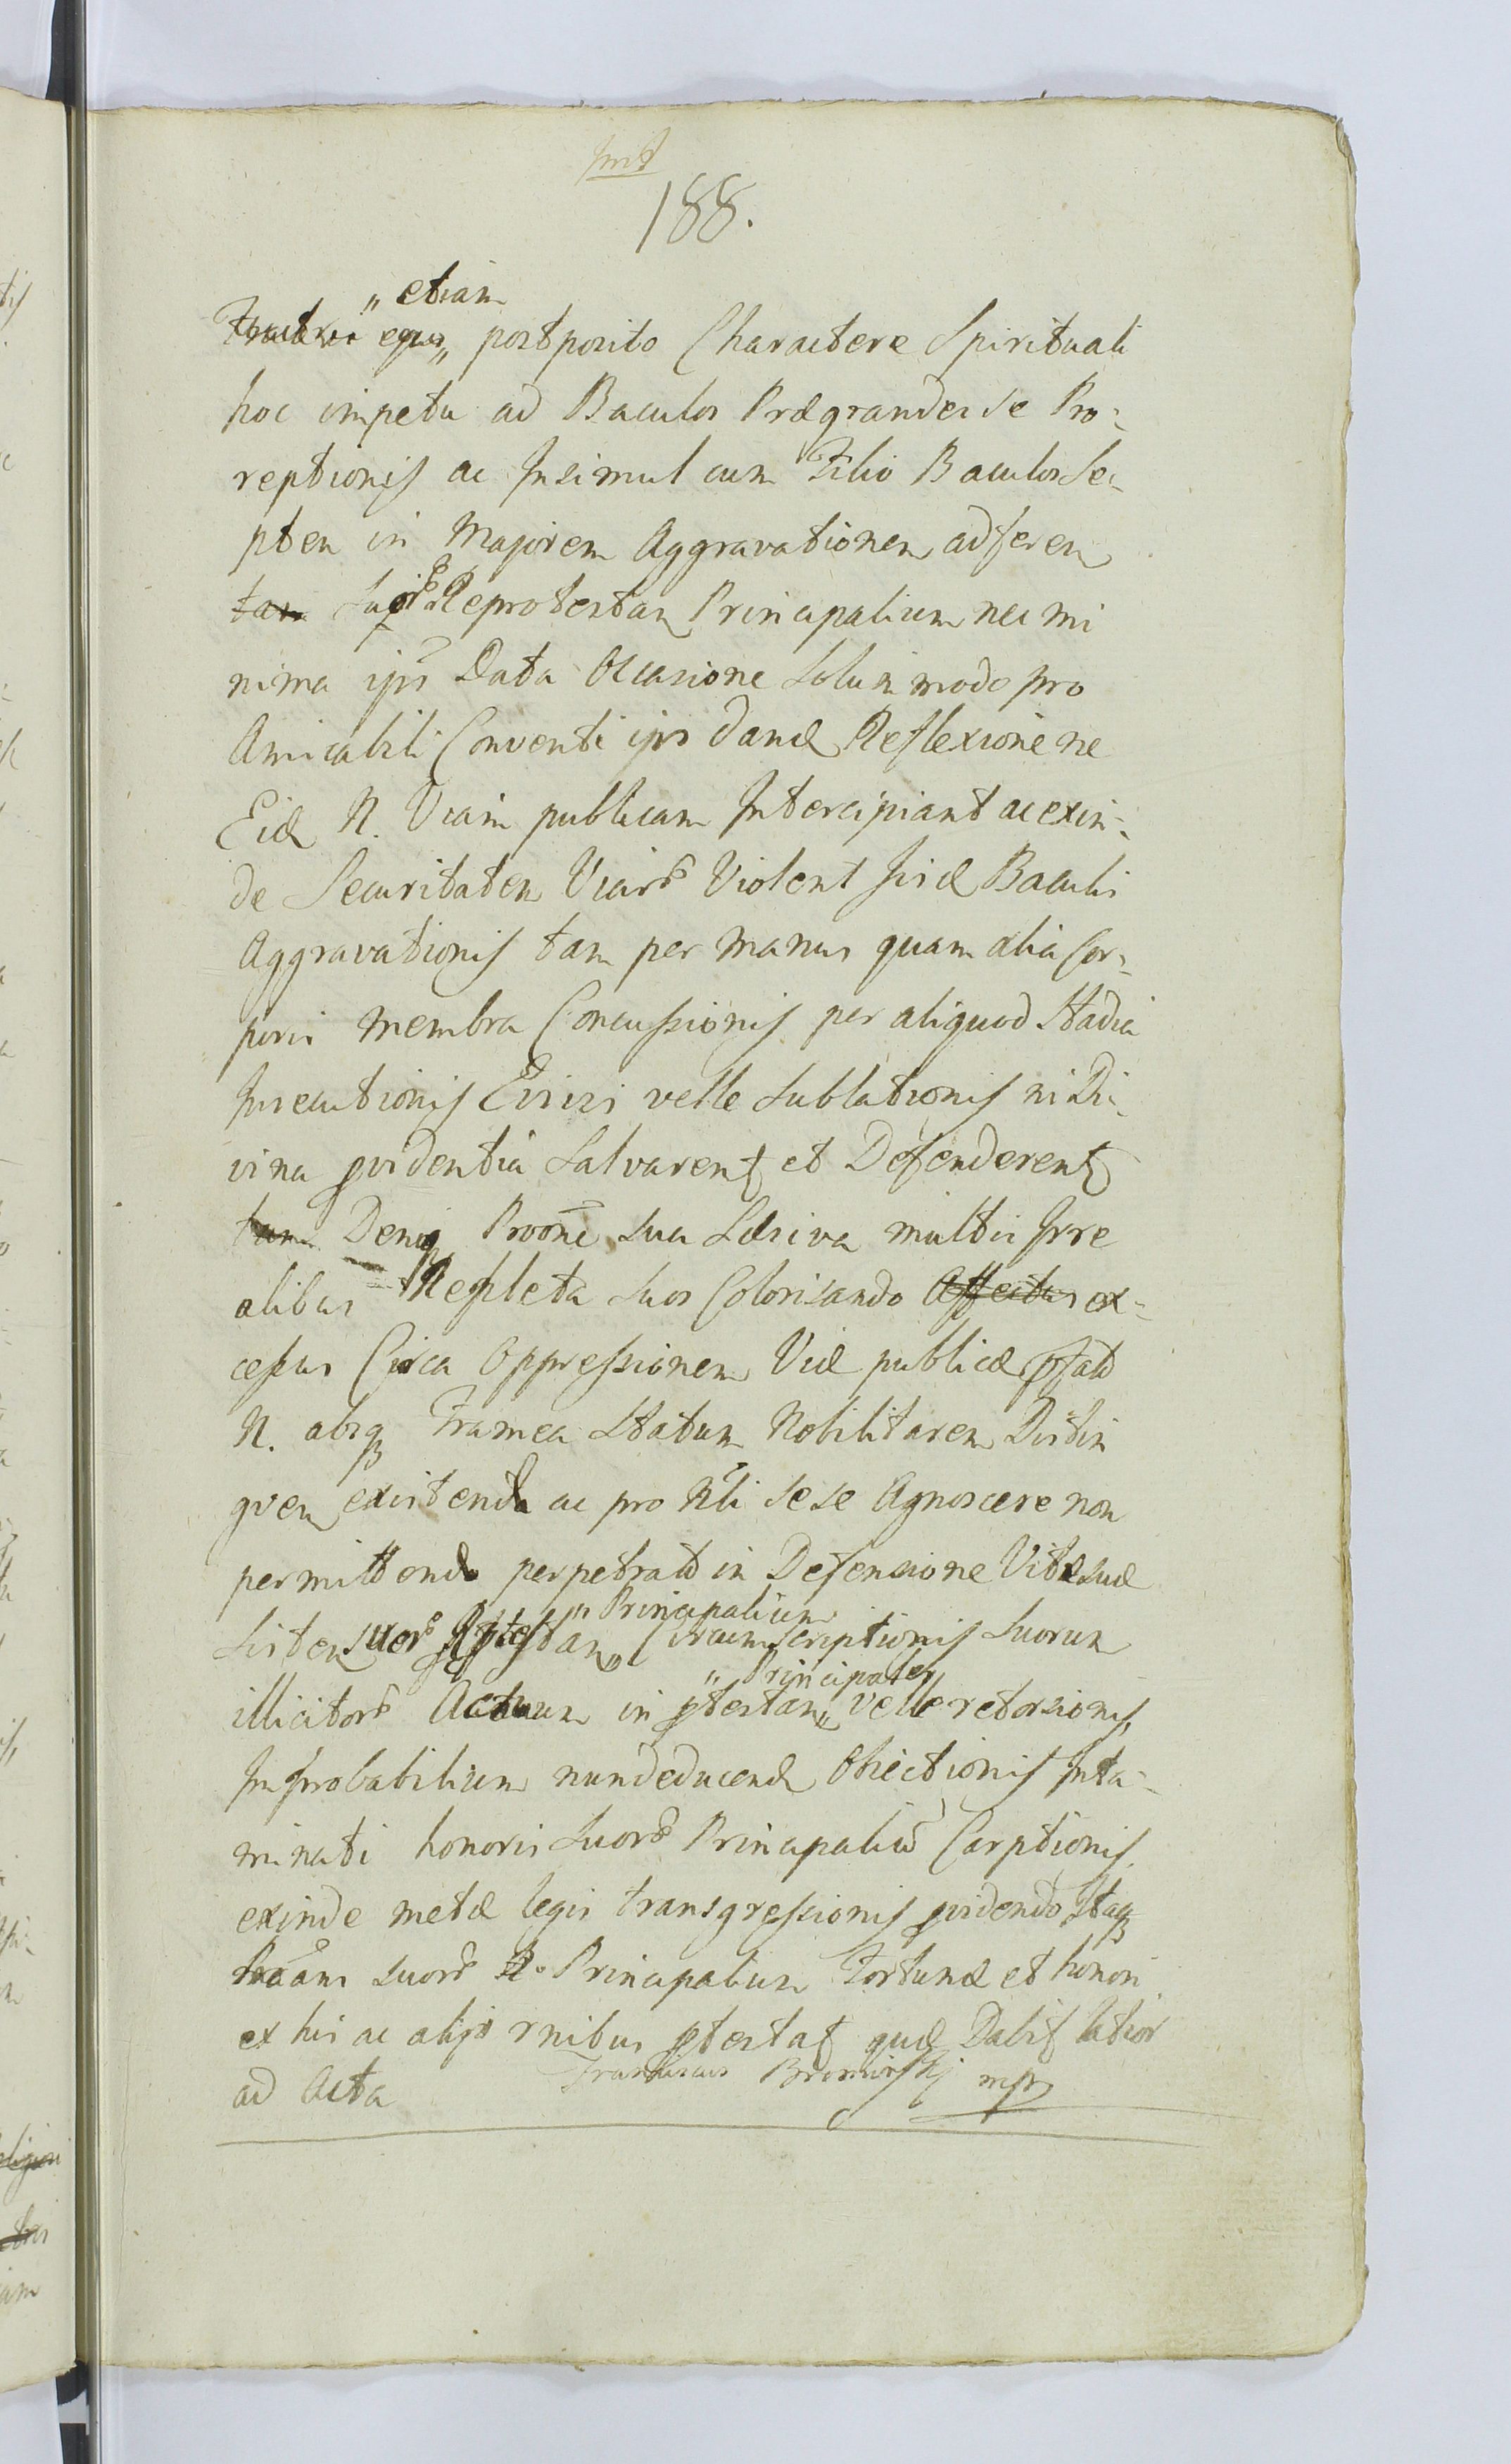 188.
" etiam
ejus " postposito Charactere Spirituali
hoc impetu ad Baculos Prægrandes se Pro-
reptionis ac Insimul cum Filio Baculos Se-
pten in Majorem Aggravationem adferen
tam Reprotestan Principalium nec mi
nima ips Data Occasione Solummodo pro
Amicabili Conventi ips danæ Reflexione ne
Eid N. Viam publicam Intercipiant ac exin-
de Securitatem Violent Baculis
Aggravationis tam per manus quam alia Cor-
poris membra Concussionis per aliquod Stadia
Insecutionis velle Sublationis ni Di-
vina pvidentia Salvarent et Defenderent
tam Deniq sua multis Irre
alibus Repleta suos Colorisando Affectus ex-
cessus Circa Oppressionem Viæ publicæ pfato
N. absq Framea Statum Nobilitarem Distin
guen existendo ac pro Nli sese Agnoscere non
permittendo perpetrato in Defensione Vitæ suæ
" Principalium
Sisten suor Circumscriptionis Suorum
" Principales
illicitor Actuum in ptestan " velle retorsionis
Improbabilium nundeducend Obiectionis Inta-
minati honoris Suor Principaliu Carptionis
exinde metæ legis transgressionis pvidendo Itaq
suor Principalium Fortunæ et honori
ex his ac alijs ptestat quæ Dabit latior
ad Acta Franciscus mpr